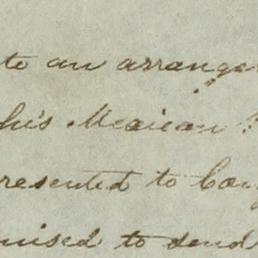 to an arrange
his Mexican
resented to Con
mised to send